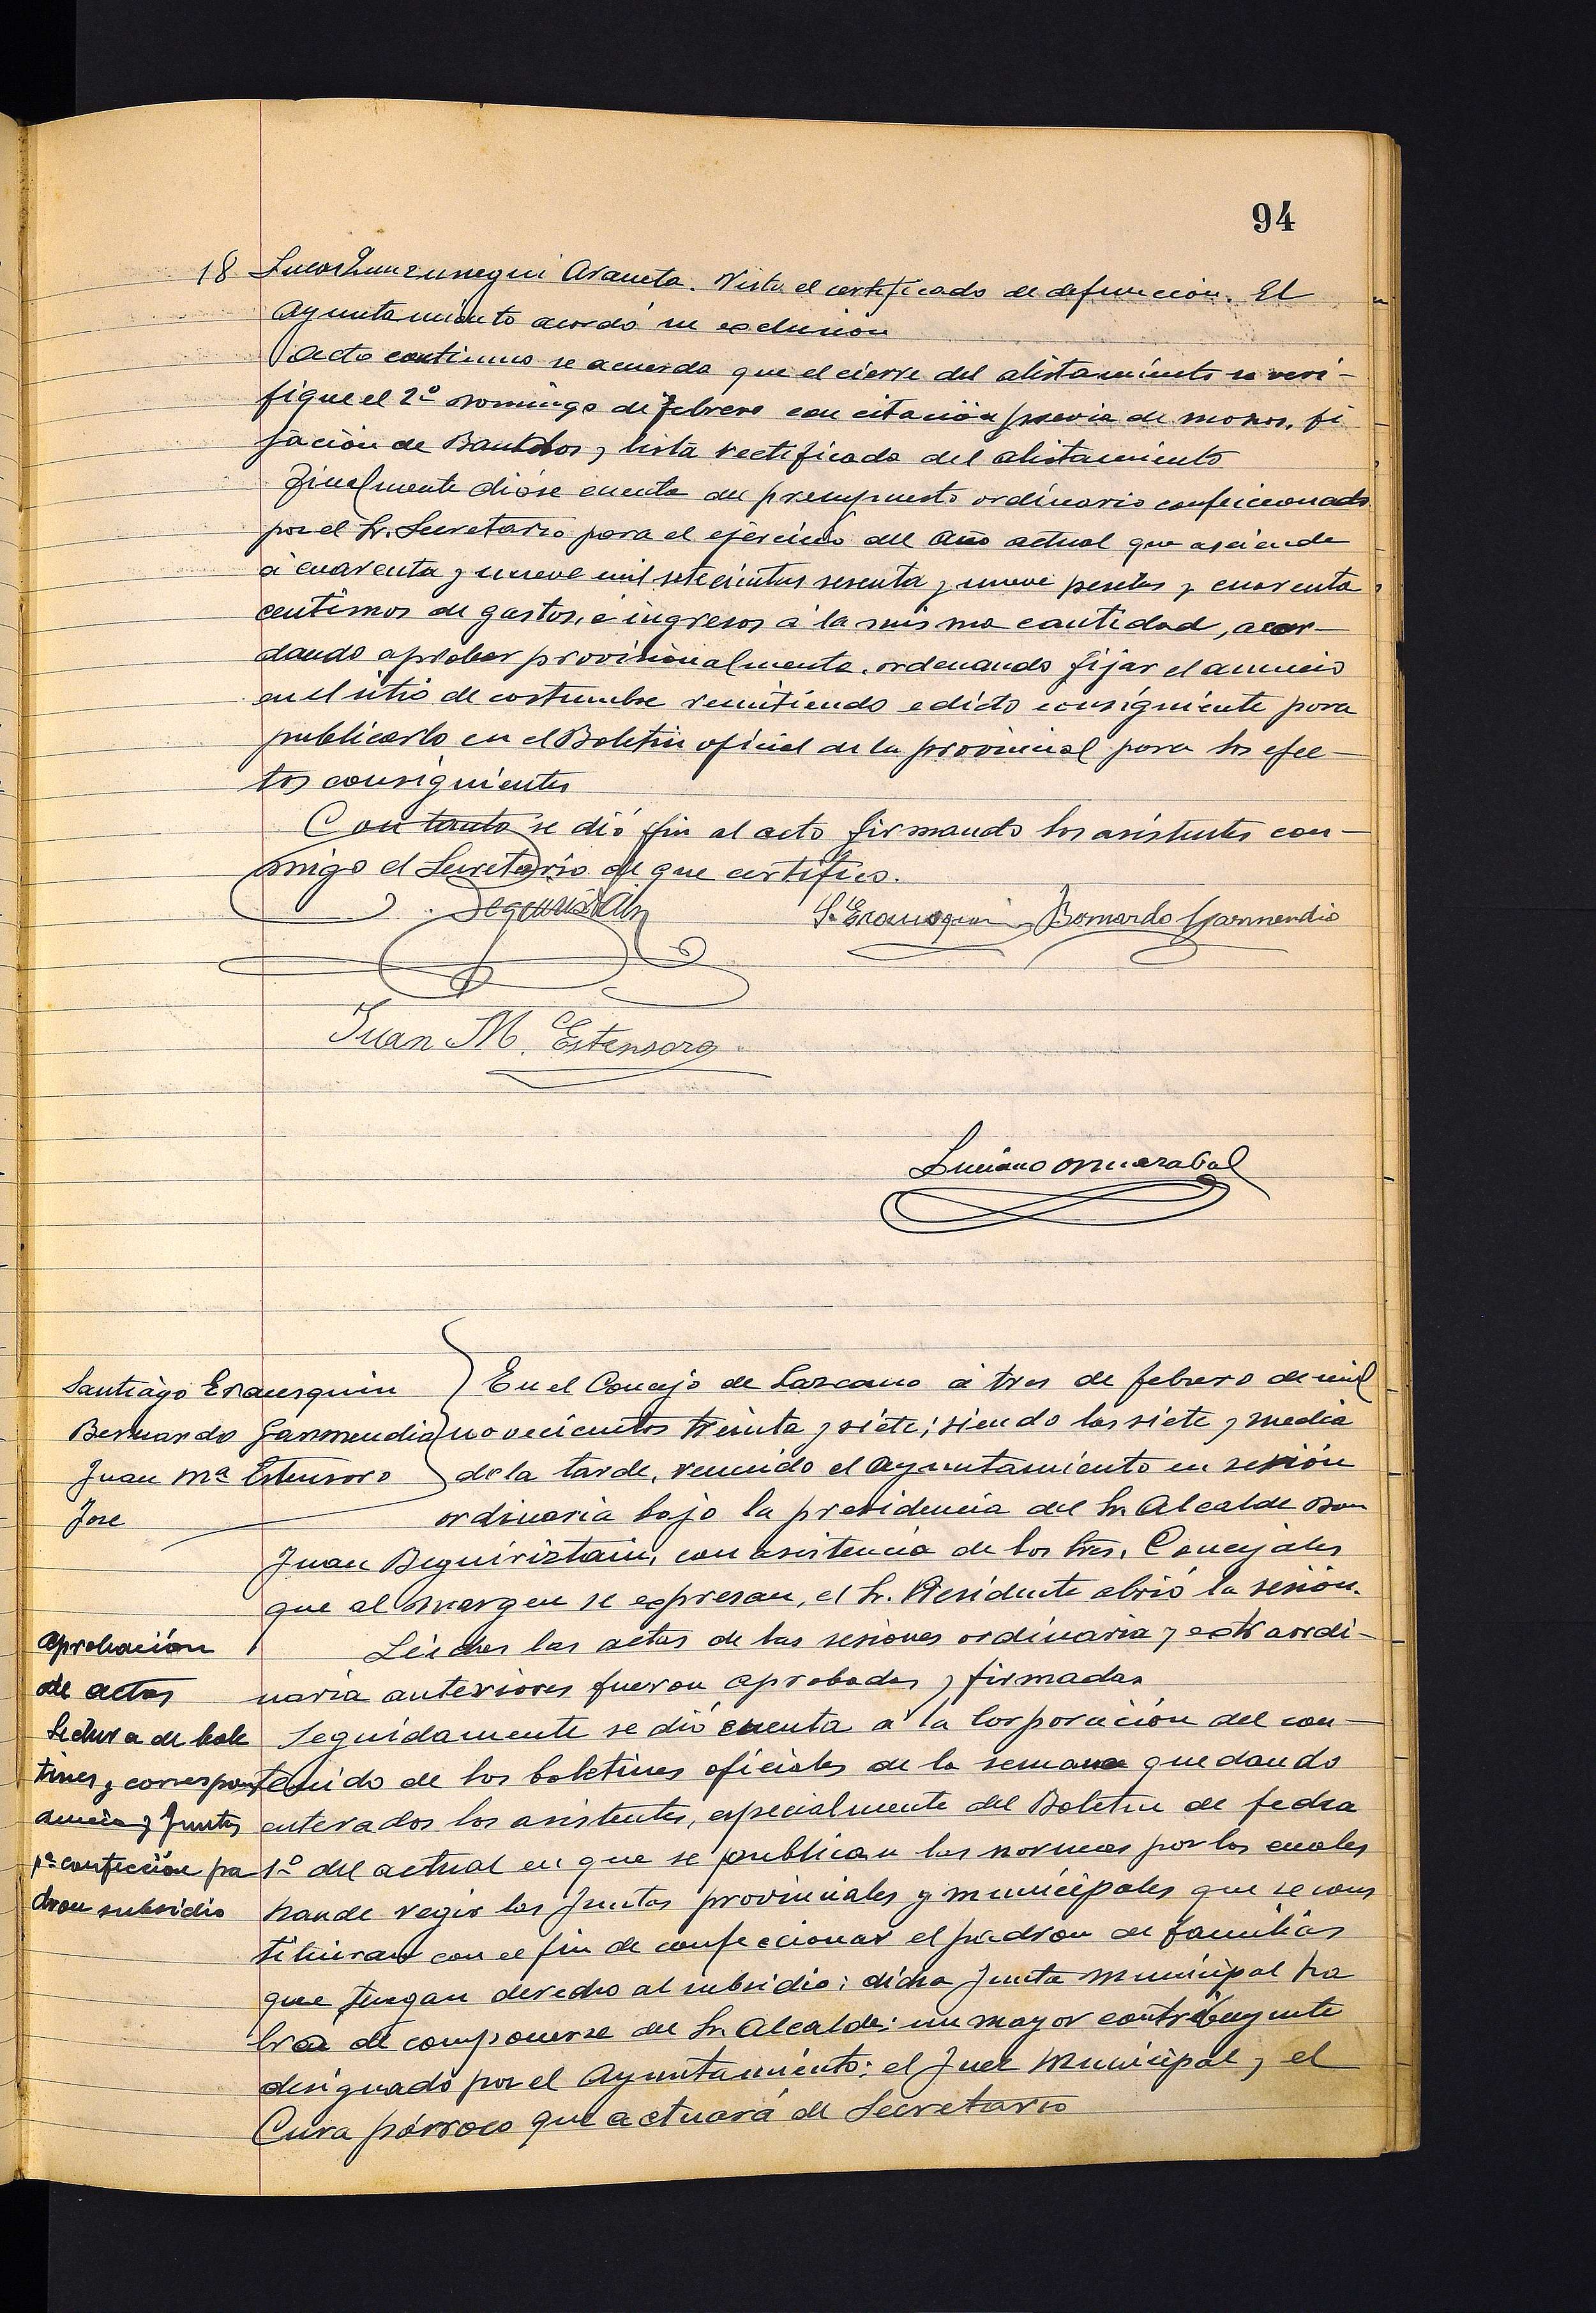 94
18 Lucas Zunzunegui Araneta. Visto el certificado de defuncion. El
Ayuntamiento acordó su exclusion
Acto continuo se acuerda que el cierre del alistamiento se veri-
fique el 2º Domingo de Febrero con citación previa de mozos, fi
jación de Bandos y lista rectificada del alistamiento
Finalmente dióse cuenta del presupuesto ordinario confeccionado
por el Sr. Secretario para el ejercicio del Año actual que asciende
á cuarenta y nueve mil setecientas sesenta y nueve pesetas y cuarenta
centimos de gastos, é ingresos á la misma cantidad, acor-
dando aprobar provisionalmente, ordenando fijar el anuncio
en el sitio de costumbre remitiendo edicto consiguiente para
publicarlo en el Boletin oficial de la provincial para los efec-
tos consiguientes
Con tanto se dió fin al acto firmando los asistentes con-
migo el Secretario de que certifico.
S. Erausquin Bernardo Garmendia
Juan M. Estensoro
Luciano Munarabal
Santiago Erausquin
Bernardo Garmendia
Juan Mª Estensoro
Jose
En el Concejo de Lazcano á tres de febrero de mil
novecientos treinta y siete; siendo las siete y media
de la tarde, reunido el Ayuntamiento en sesión
ordinaria bajo la presidencia del Sr. Alcalde Don
Juan Beguiriztain, con asistencia de los Sres. Concejales
que al margen se expresan, el Sr. Presidente abrió la sesión.
Aprobación
de actas
Leidas las actas de las sesiones ordinaria y extraordi-
naria anteriores fueron aprobadas y firmadas
Lectura de bole
tines y correspon
dencia y Juntas
pª confección pa
dron subsidio
Seguidamente se dió cuenta a la Corporación del con-
tenido de los boletines oficiales de la semana quedando
enterados los asistentes, especialmente del Boletin de fecha
1º del actual en que se publican las normas por las cuales
han de regir las Juntas provinciales y municipales que se cons
tituiran con el fin de confeccionar el padron de familias
que tengan derecho al subsidio: dicha Junta municipal ha
brá de componerse del Sr. Alcalde: un mayor contribuyente
designado por el Ayuntamiento: el Juez Municipal y el
Cura párroco que actuará de Secretario